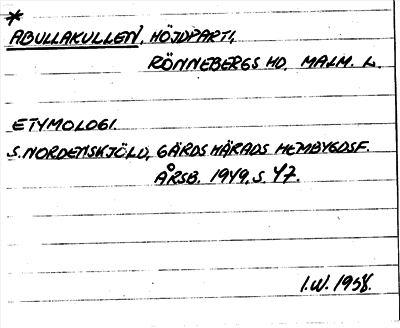 *
ABULLAKULLEN, HÖJDPARTI,
RÖNNEBERGS HD, MALM. L.
ETYMOLOGI.
S. NORDENSKJÖLD, GÄRDS HÄRADS HEMBYGDSF.
ÅRSB. 1949, S. 47.
I.W. 1958.